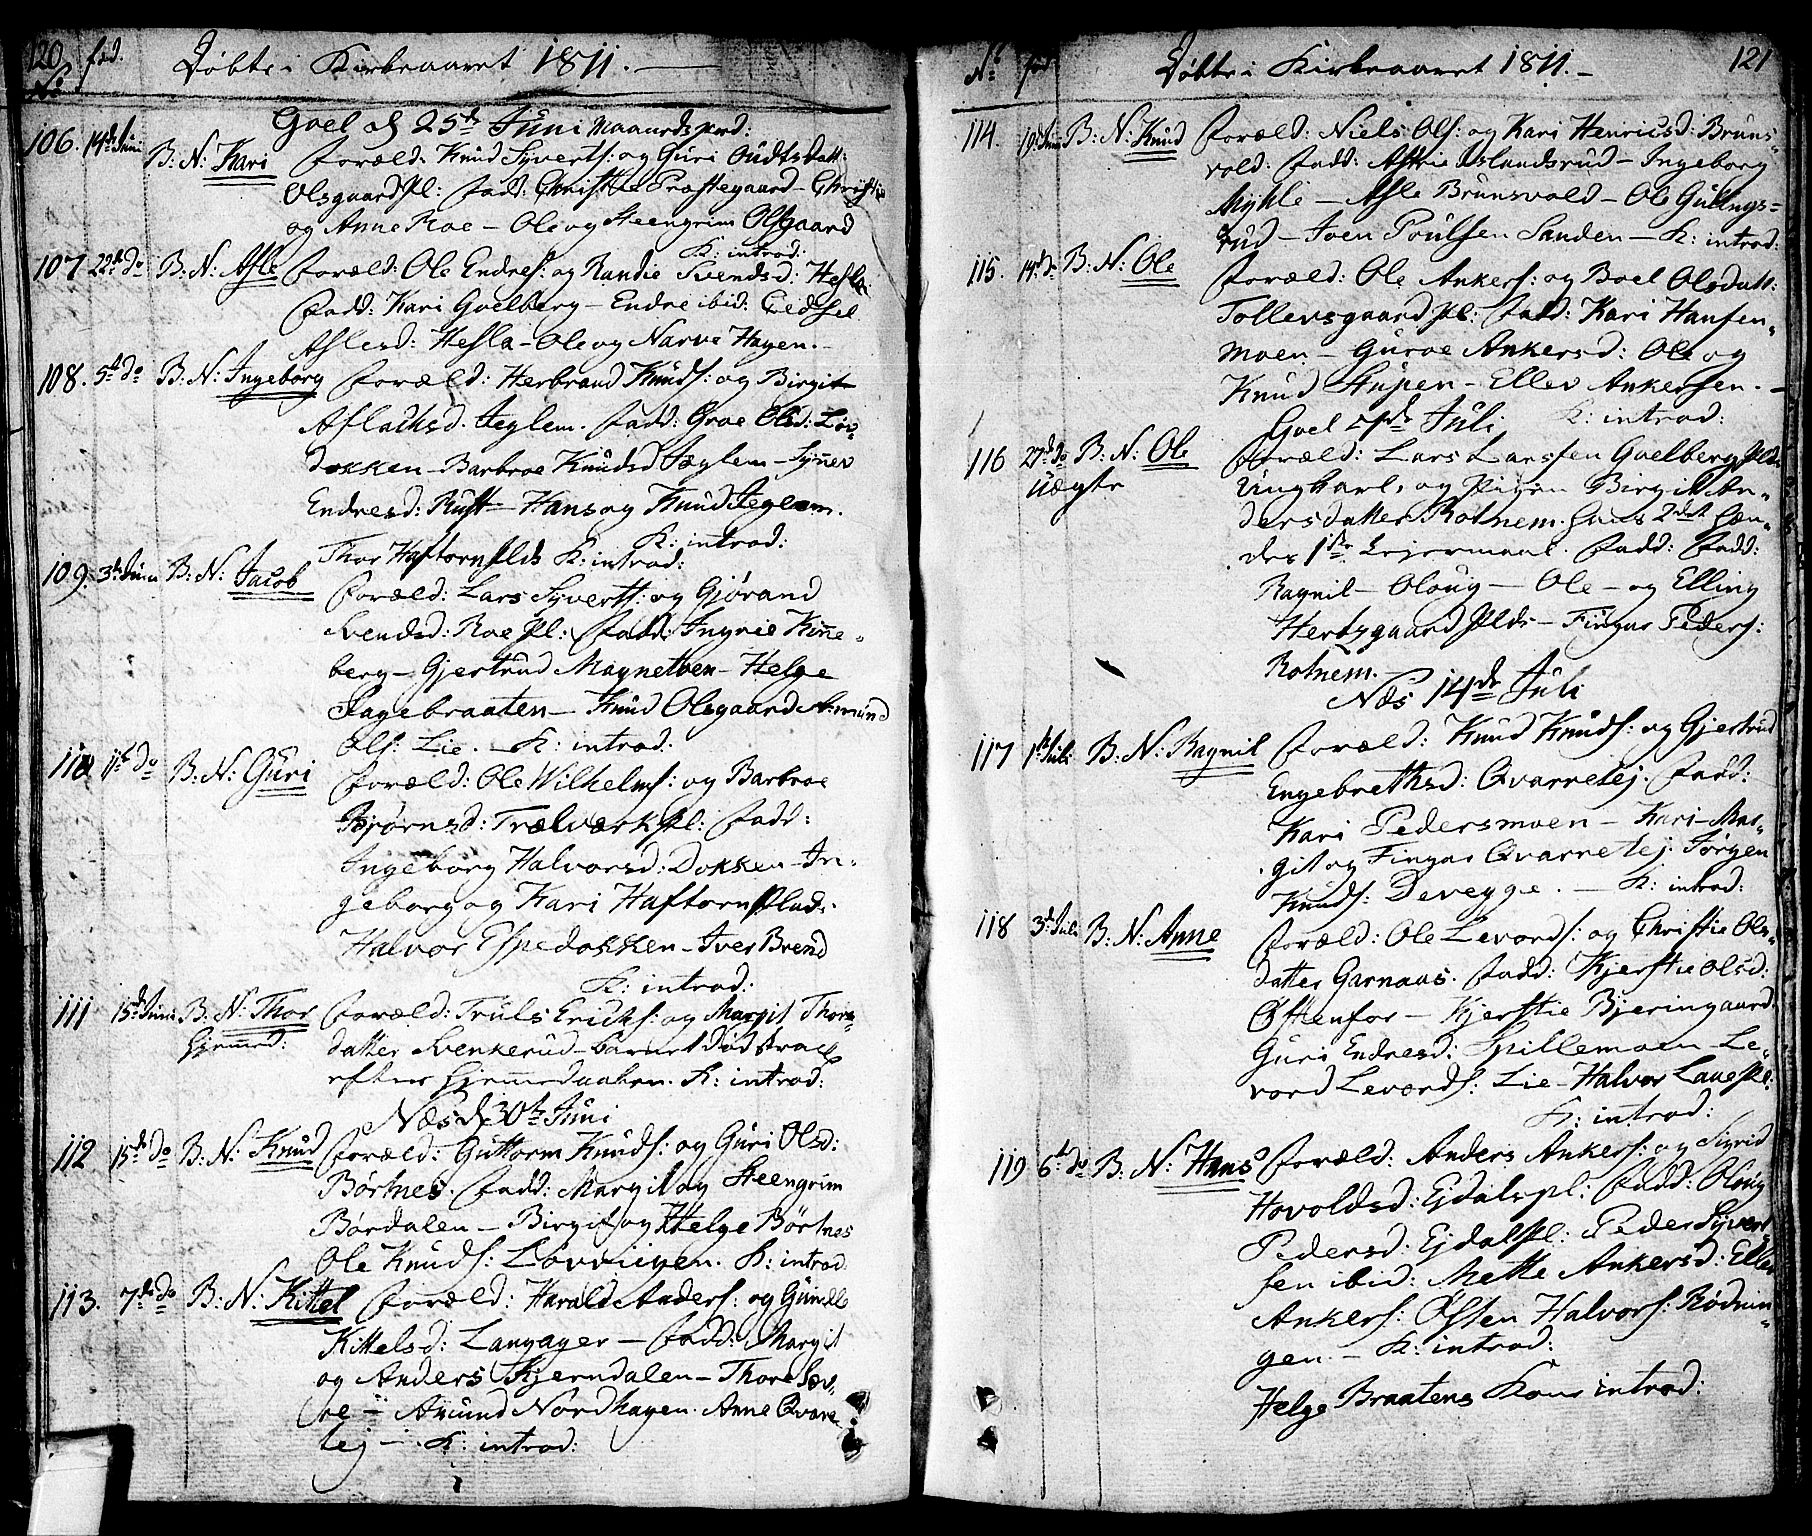 120 fød. Døbte i Kirkeaaret 1811. —
No
Goel d 25de Juni Maanedsperd:
106. 14de Juni B: N: Kari Foræld: Knud Syverts: og Guri Oudtsdatt:
Olsgaard Pl: Fadd: Christie Præstegaard – Christie
og Anne Roe – Ole og Steengrim Olsgaard
K: introd:
107 22de do B: N: Asle Foræld: Ole Endres: og Randie Svendsd: Hesla
Fadd: Kari Goelberg – Endre ibid: Eedsel
Aslesd: Hesla – Ole og Narve Hagen. –
108. 5te do B: N: Ingeborg Foræld: Herbrand Knuds: og Birgit
Aslachsd. Jeglem. Fadd: Groe Olsd: Løv-
dokken – Barbroe Knudsd Jeglem – Synnev
Endresd: Rust – Hans og Knud Jeglem.
K: introd:
Thor Haftornplds K: introd:
109. 3de Juni B: N: Jacob Foræld: Lars Syverts: og Gjørand
Svendsd: Roe pl: Fadd: Ingrie Kinne-
berg – Gjertrud Magnetven – Helge
Hagebraaten – Knud Olsgaard Amund
Ols: Lie. – K: introd:
110 11te do B: N: Guri Foræld: Ole Wilhelms: og Barbroe
Bjørnsd: Trælværk Pl: Fadd:
Ingeborg Halvorsd: Dokken – In-
geborg og Kari Haftornplads
Halvor Espedokken – Iver Brend
K: introd:
111 15de Juni B: N: Thor Foræld: Truls Ericks: og Margit Thors-
Hjemmed: datter Svenkerud – barnet død strax
efter Hjemmedaaben. K: introd:
Næs d 30te Juni
112 15de do B: N: Knud Foræld: Guttorm Knuds: og Guri Olsd:
Børtnes. Fadd: Margit og Steengrim
Børdalen – Birgit og Helge Børtnes
Ole Knuds: Lovviigen. K: introd
113. 7de do B: N: Kittel Foræld: Harald Anders: og Gunild
Kittelsd: Langager – Fadd: Margit
og Anders Kjerndalen – Thore Sæv-
re – Amund Nordhagen. Anne Qvarne
tej – . K: introd:
No fød Døbte i Kirkeaaret 1811. – 121
114. 19de Juni B: N: Knud Foræld: Niels Ols: og Kari Henricsd: Bruns-
vold: Fadd: Astrie Islandsrud – Ingeborg
Myhle – Asle Brunsvold – Ole Gullings-
rud – Joen Poulsen Sanden – K: introd:
115. 14de do B: N: Ole Foræld: Ole Ankers: og Boel Olsdatt:
Tollevsgaard pl: Fadd: Kari Hansen-
moen – Guroe Ankersd: Ole og
Knud Stupen – Ellev Ankersen. –
Goel 7de Juli K: introd:
116 27de do B: N: Ole Foræld: Lars Larssen Goelberg plds
Uægte Ungkarl, og Pigen Birgit An-
dersdatter Rotnem. hans 2det hen-
des 1ste Leiermaal. Fadd: Fadd:
Ragnil – Oloug – Ole – og Elling
Herbygaard plds – Fingar Peders:
Rotnem.
Næs 14de Juli
117 1ste Juli B: N: Ragnil Foræld: Knud Knuds: og Gjertrud
Engebrethsd: Qvarnetej. Fadd:
Kari Pedersmoen – Kari – Mar-
git og Fingar Qvarnetej. Jørgen
Knuds: Devegge. – K: introd:
118 3de Juli B: N: Anne Foræld: Ole Levords: og Christie Ols-
datter Garnaas. Fadd: Kjerstie Olsd:
Østenfor – Kjerstie Bjeringaard
Guri Endresd: Spillemoen – Le-
vord Levords: Lie – Halvor
K: introd:
119 6te do B. N: Hans Foræld: Anders Ankers: og Sigrid
Hovoldsd: Ejdals pl: Fadd: Oloug
Pedersd: Ejdals pl: Peder Syvert-
sen ibid: Mette Ankersd: Ellev
Ankers: Østen Halvors: Rødnin-
gen. – K: introd:
Helge Braatens Kone introd: